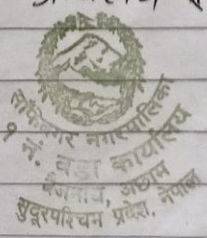 साँफेबगर नगरपालिका
१ नं. वडा कार्यालय
बैजनाथ, अछाम
सुदूरपश्चिम प्रदेश, नेपाल